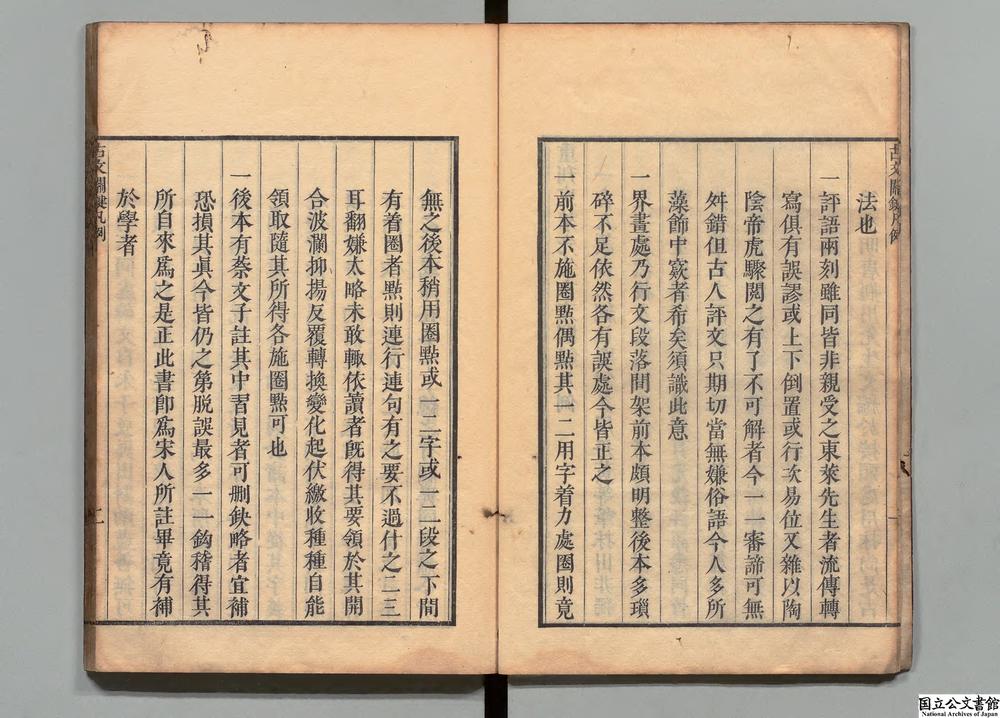 古文關鍵凡例
法也
一評語兩刻雖同皆非親受之東萊先生者流傳轉
寫俱有誤謬或上下倒置或行次易位又雜以陶
陰帝虎驟閱之有了不可解者今一一審諦可無
舛錯但古人評文只期切當無嫌俗語今人多所
藻飾中窽者希矣須識此意
一界畫處乃行文段落間架前本頗明整後本多瑣
碎不足依然各有誤處今皆正之
一前本不施圈點偶點其一二用字着力處圈則竟
無之後本稍用圈點或一二字或一二段之下間
有着圈者點則連行連句有之要不過什之二三
耳翻嫌太略未敢輒依讀者旣得其要領於其開
合波瀾抑揚反覆轉換變化起伏繳收種種自能
領取隨其所得各施圈點可也
一後本有蔡文子註其中習見者可刪缺略者宜補
恐損其眞今皆仍之第脫誤最多一一鈎稽得其
所自來爲之是正此書卽爲宋人所註畢竟有補
於學者
古文關鍵凡例
二
国立公文書館
National Archives of Japan